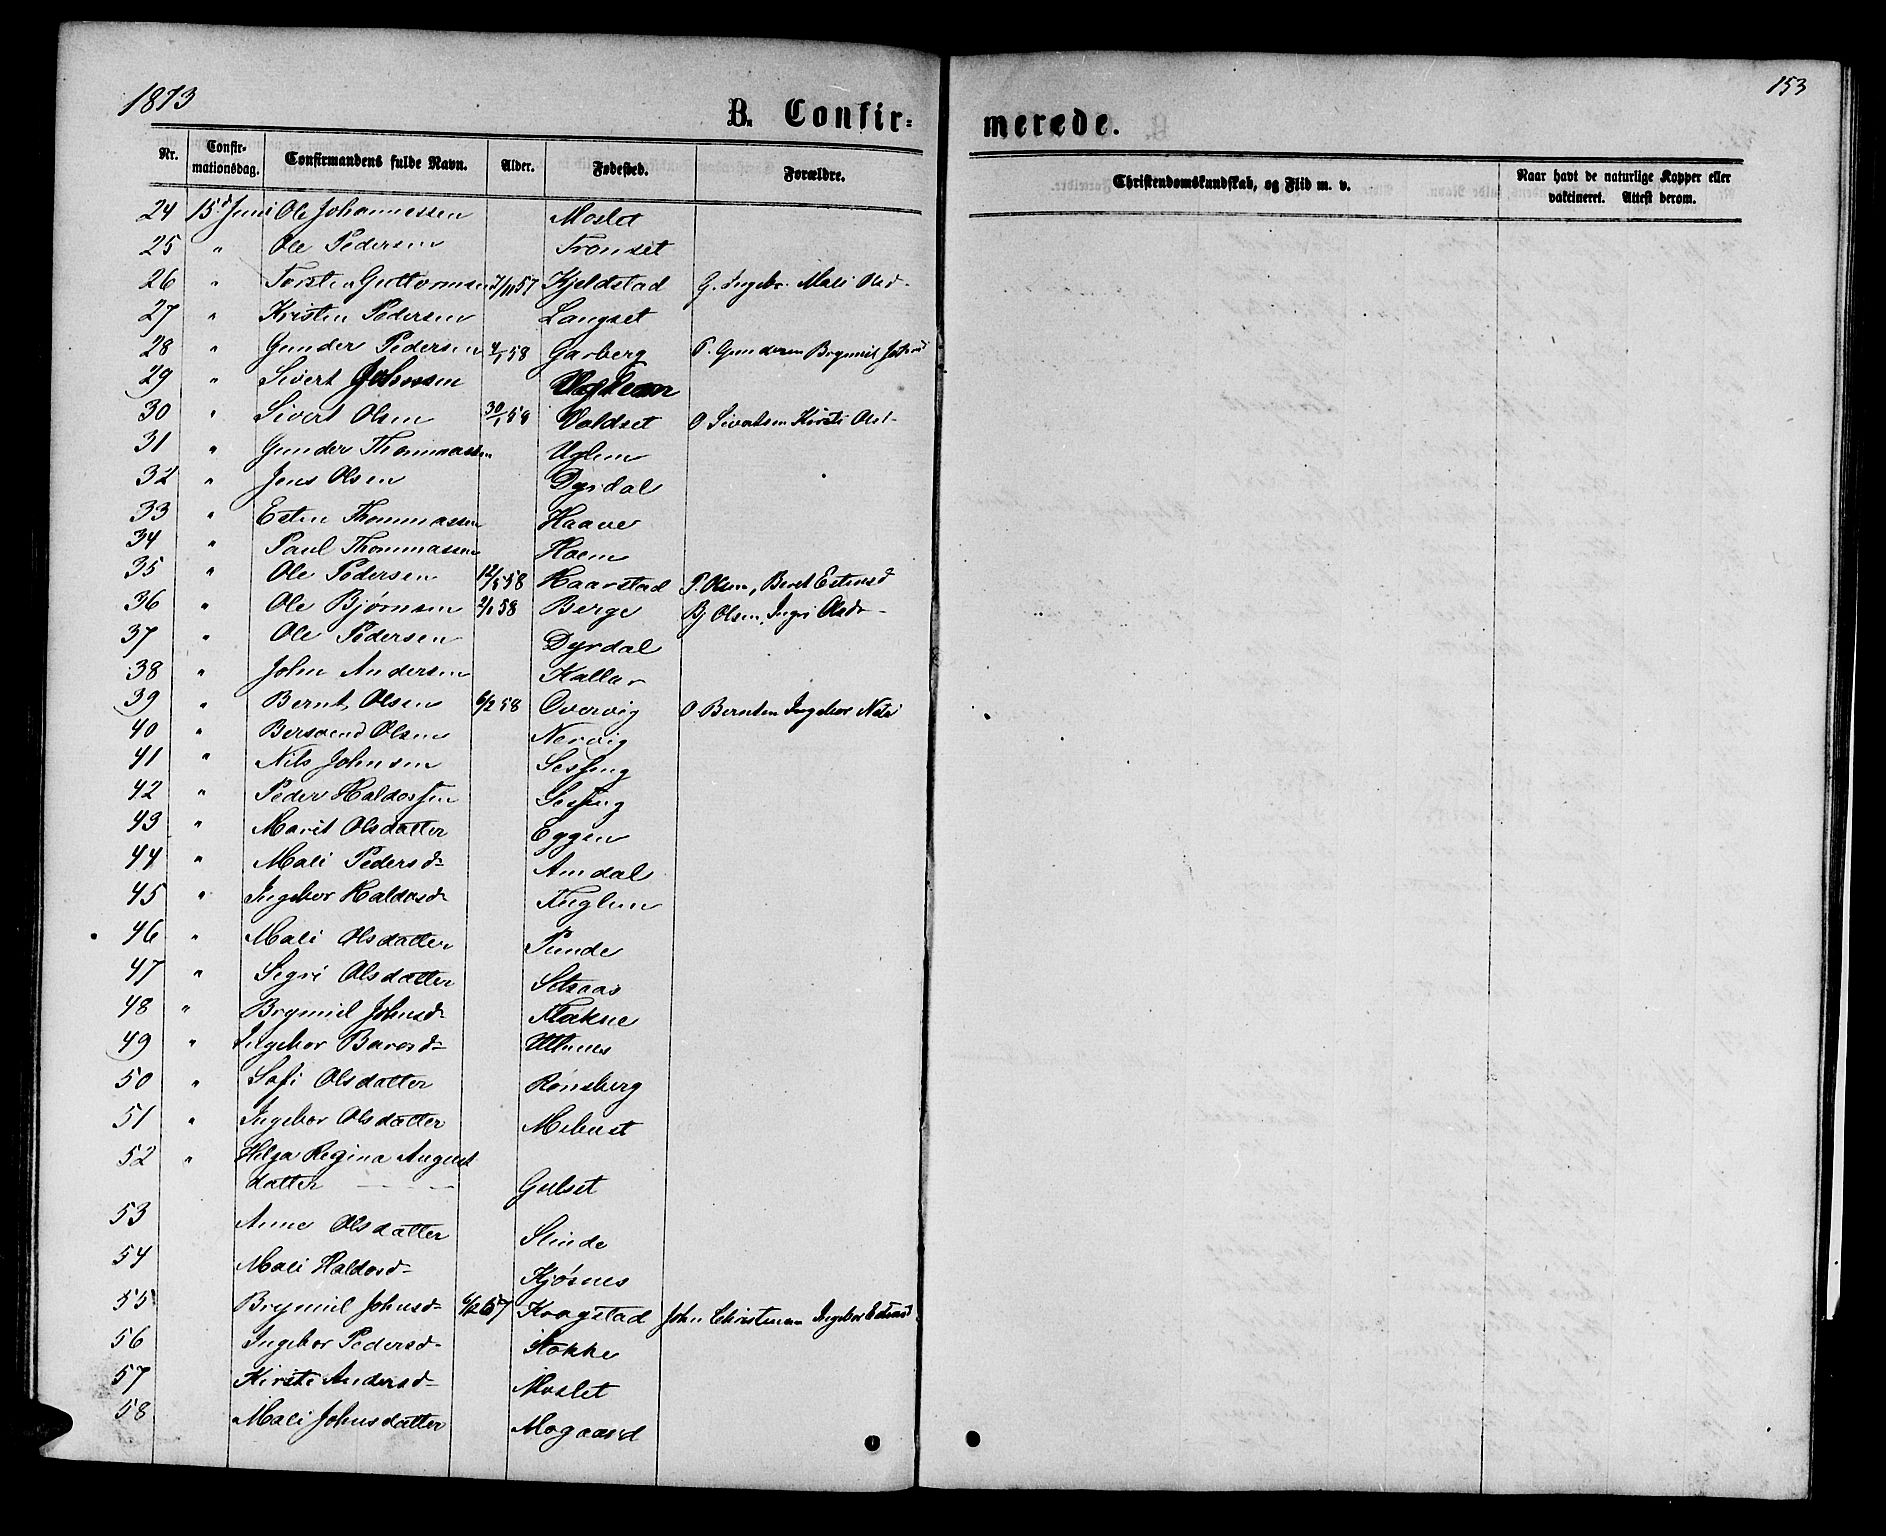 1873
153
B. Confir=
merede.
Nr. Confir-mationsdag. Confirmandens fulde Navn. Alder. Fødested. Forældre. Christendomskundskab, og Flid m. v. Naar havt de naturlige Kopper eller vaktineret. Attest derom.
24 15d Juni Ole Johannessen Moslet
25 " Ole Pedersen Tronset
26 " Torsten Guttormsen 7/11 57 Kjeldstad G. Ingebr. Mali Olsd-
27 " Kristen Pedersen Langset
28 " Gunder Pedersen 4/1 58 Garberg P. Gundersen Brynnil
29 " Sivert Johnsen
30 " Sivert Olsen 30/1 59 Valdset O Sivertsen Kirsti Olsd-
31 " Gunder Thommassen Uglem
32 " Jens Olsen Dyrdal
33 " Esten Thommassen Haave
34 " Paul Thommassen Hoem
35 " Ole Pedersen 12/5 58 Haarstad P. Olsen, Beret Estensd
36 " Ole Bjørnsen 2/1 58 Berge Bj Olsen, Ingri Olsdr-
37 " Ole Pedersen Dyrdal
38 " John Andersen Kallar
39 " Bernt Olsen 6/2 58 Overvig O Berntsen Ingebor
40 " Bersvend Olsen Nervig
41 " Nils Johnsen Sesseng
42 " Peder Haldorsen Sesseng
43 " Marit Olsdatter Eggen
44 " Mali Pedersd- Amdal
45 " Ingebor Haldorsd- Fuglem
46 " Mali Olsdatter
47 " Segri Olsdatter
48 " Brynnil Johnsd- Flakne
49 " Ingebor Baarsd-
50 " Sofi Olsdatter Rønsberg
51 " Ingebor Olsdatter Mebust
52 " Helga Regina August
datter Gulset
53 Anne Olsdatter Slinde
54 Mali Haldosd- Kjøsnes
55 Brynnil Johnsd- 6/12 57 Kragstad John Christensen Ingebor Estensd
56 Ingebor Pedersd- Stokke
57 Kirsti Andersd- Moslet
58 Mali Johnsdatter Mogaard